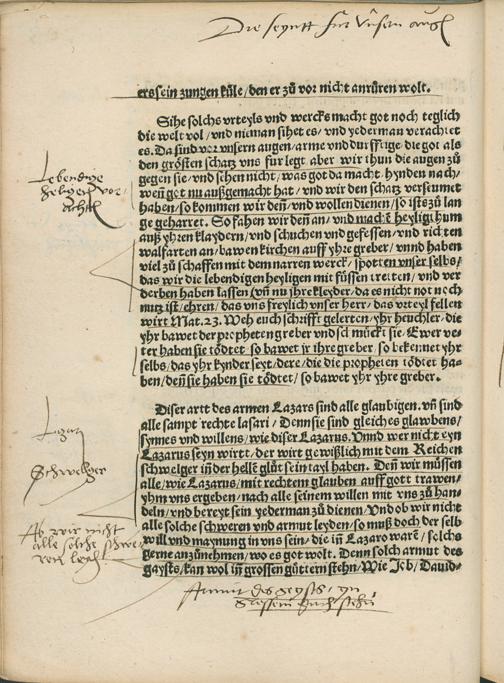 Die seyntt fur unsern augen
ers sein zungen küle / den er zů vor nicht anrüren wolt.
Sihe solchs vrteyls vnd wercks macht got noch teglich
die welt vol / vnd nieman sihet es / vnd yederman verachtet
es. Da sind vor vnsern augen / arme vnd durfftige die got als
den grösten schatz vns fur legt aber wir thun die augen zů
gegen sie / vnd sehen nicht / was got da macht. hynden nach /
wen got nu außgemacht hat / vnd wir den schatz verseumet
haben / so kommen wir deñ / vnd wollen dienen / so ists zu lan
ge geharret. So fahen wir den an / vnd mach̄e heyligthum
auß yhren klaydern / vnd schuchen vnd gefessen / vnd richten
walfarten an / bawen kirchen auff yhre greber / vnnd haben
viel zů schaffen mit dem narren werck / spotten vnser selbs /
das wir die lebendigen heyligen mit füssen tretten / vnd ver
derben haben lassen (vñ nu jhre kleyder / da es nicht not noch
nutz ist / ehren / das vns freylich vnser herr / das vrteyl fellen
wirt Mat. 23. Weh euch schrifft gelerten / yhr heuchler / die
yhr bawet der propheten greber vnd schmücket sie. Ewer ve-
ter haben sie tödtet / so bawet jr ihre greber / so bekennet yhr
selbs / das yhr kynder seyt / dere / die die propheten tödtet ha-
ben / deñ sie haben sie tödtet / so bawet yhr yhre greber.
Lebendige
helgen ver
achtet
Diser artt des armen Lazars sind alle glaubigen. vñ sind
alle sampt rechte lasari / Denn sie sind gleiches glawbens /
synnes vnd willens / wie diser Lazarus. Vnnd wer nicht eyn
Lazarus seyn wirtt / der wirt gewißlich mit dem Reichen
schwelger in der helle glůt sein tayl haben. Deñ wir müssen
alle / wie Lazarus / mit rechtem glauben auff gott trawen /
yhm vns ergeben / nach alle seinem willen mit vns zů han-
deln / vnd bereyt sein yederman zů dienen / Vnd ob wir nicht
alle solche schweren vnd armut leyden / so můß doch der selb
will vnd maynung in vns sein / die in Lazaro ware / solchs
gerne anzůnemen / wo es got wolt. Denn solch armut des
gaysts / kan wol in grossen güttern stehn / Wie Job / Dauid-
Lazari
Schwelger
Ab wir nicht
alle solche schwe
ren
Armut des geysts / yn
grossem gutt stehn